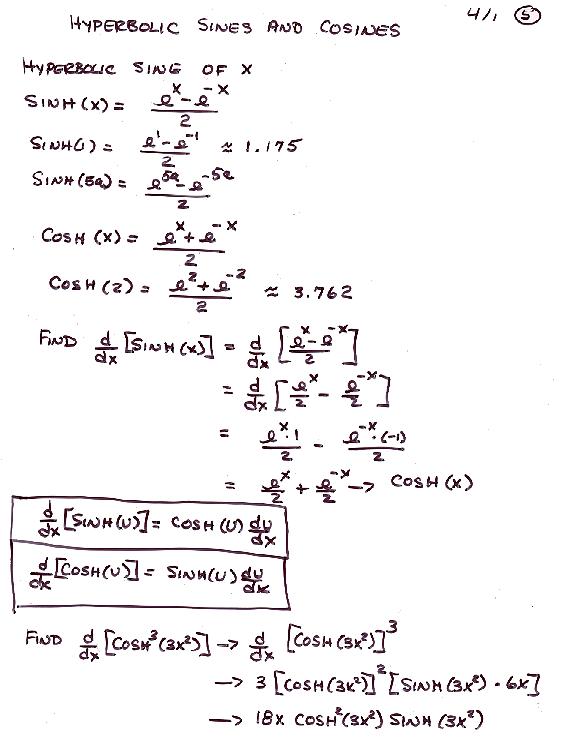 HYPERBOLIC SINES AND COSINES 4/1 ⑤
HYPERBOLIC SINE OF X
SINH(X) = (e^x - e^-x)/2
SINH(1) = (e^1 - e^-1)/2 ≈ 1.175
SINH(5a) = (e^5a - e^-5a)/2
COSH(X) = (e^x + e^-x)/2
COSH(2) = (e^2 + e^-2)/2 ≈ 3.762
FIND d/dx [SINH(X)] = d/dx [(e^x - e^-x)/2]
= d/dx [e^x/2 - e^-x/2]
= e^x·1/2 - e^-x·(-1)/2
= e^x/2 + e^-x/2 → COSH(X)
d/dx [SINH(U)] = COSH(U) du/dx
d/dx [COSH(U)] = SINH(U) du/dx
FIND d/dx [COSH^3(3X^2)] → d/dx [COSH(3X^2)]^3
→ 3 [COSH(3X^2)]^2 [SINH(3X^2) · 6X]
→ 18X COSH^2(3X^2) SINH(3X^2)